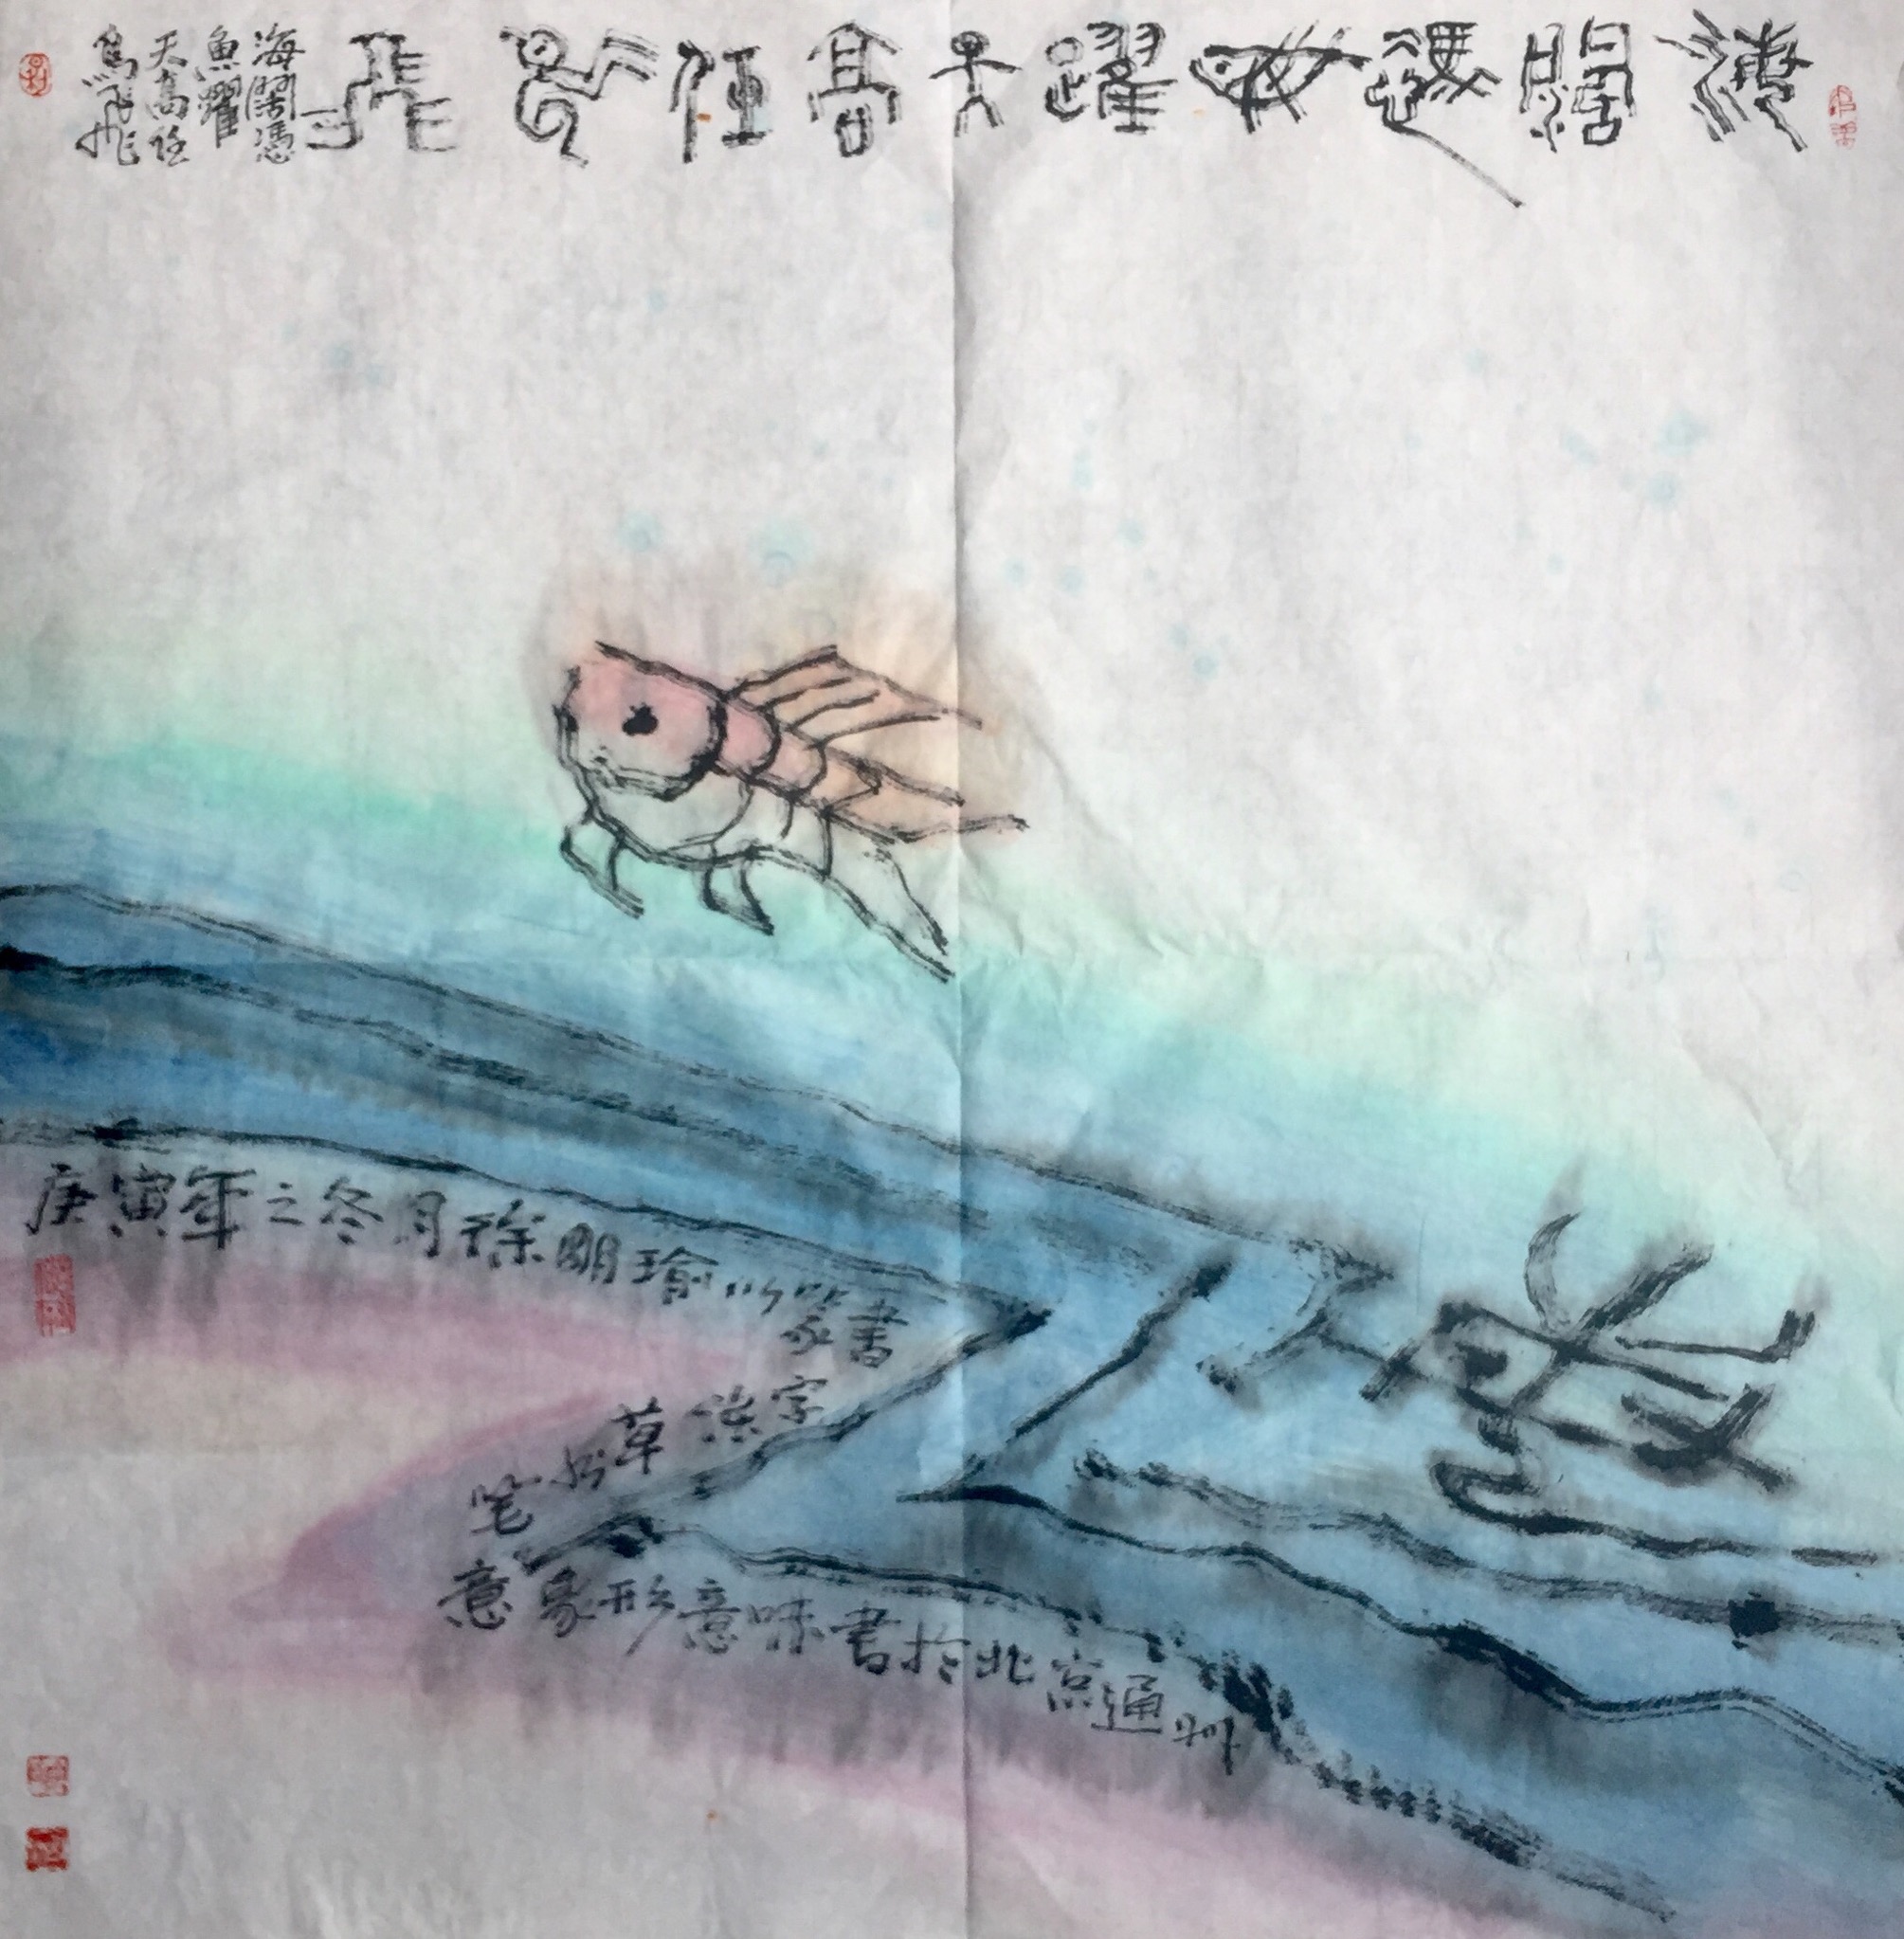 海闊憑魚躍天高任鳥飛
海闊憑
魚躍
天高任
鳥飛
庚寅年之冬月徐明瑜以篆書
字法草书笔
意象形意味書於北京通州